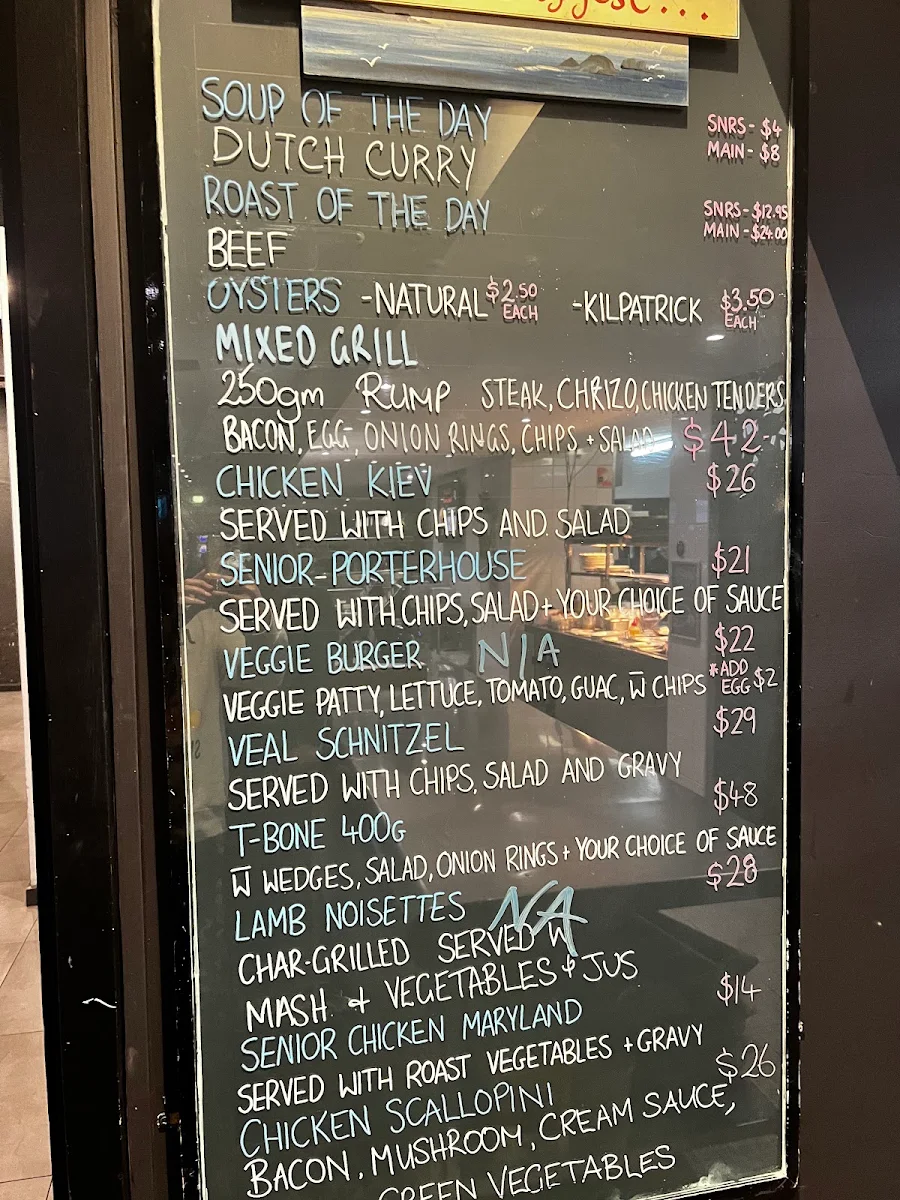 SOUP OF THE DAY
SNRS - $4
MAIN - $8
DUTCH CURRY
ROAST OF THE DAY
SNRS - $12.95
MAIN - $24.00
BEEF
OYSTERS -NATURAL $2.50 EACH -KILPATRICK $3.50 EACH
MIXED GRILL
250gm RUMP STEAK, CHRIZO, CHICKEN TENDERS
BACON, EGG, ONION RINGS, CHIPS + SALAD $42-
CHICKEN KIEV $26
SERVED WITH CHIPS AND SALAD
SENIOR PORTERHOUSE $21
SERVED WITH CHIPS, SALAD + YOUR CHOICE OF SAUCE
VEGGIE BURGER N/A $22
VEGGIE PATTY, LETTUCE, TOMATO, GUAC, W̅ CHIPS *ADD EGG $2
VEAL SCHNITZEL $29
SERVED WITH CHIPS, SALAD AND GRAVY
T-BONE 400G $48
W̅ WEDGES, SALAD, ONION RINGS + YOUR CHOICE OF SAUCE
LAMB NOISETTES NA $28
CHAR-GRILLED SERVED W
MASH + VEGETABLES & JUS
SENIOR CHICKEN MARYLAND $14
SERVED WITH ROAST VEGETABLES + GRAVY
CHICKEN SCALLOPINI $26
BACON, MUSHROOM, CREAM SAUCE,
GREEN VEGETABLES